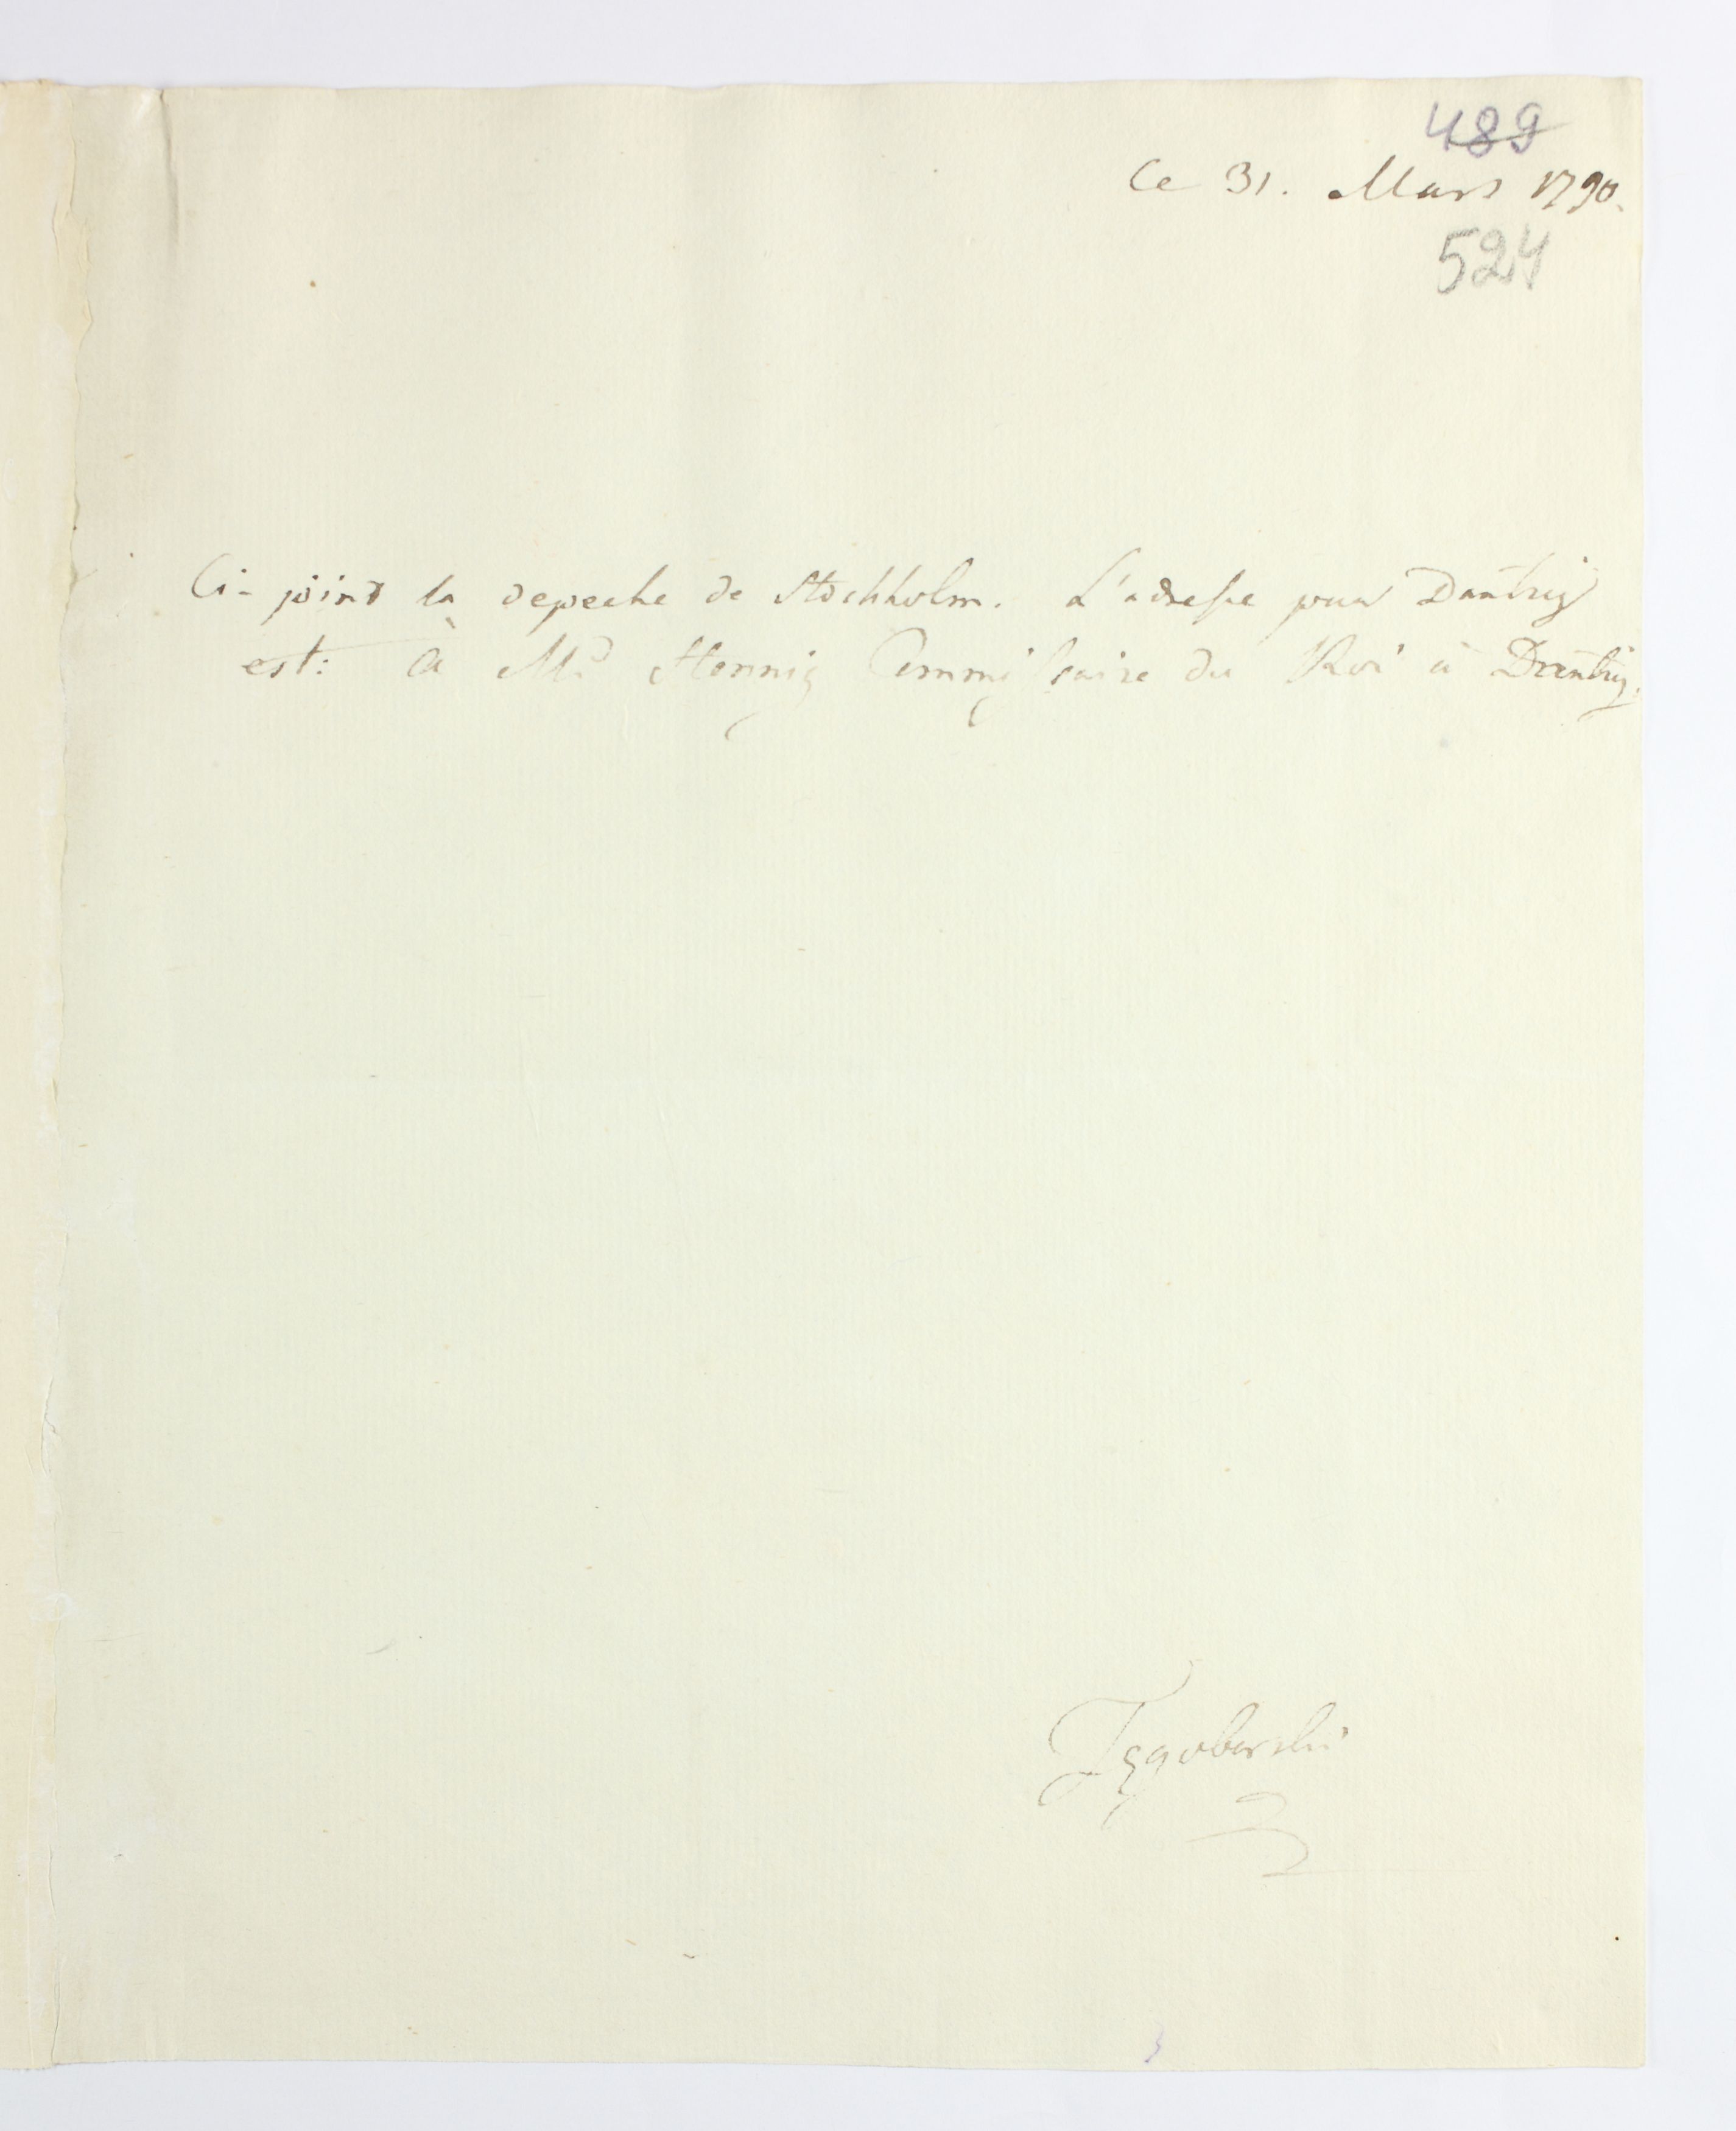 489
Ce 31. Mars 1790.
524
Ci-joint la depeche de Stockholm. L'adresse pour Dantzig
est: à Mr Hennig Commissaire du Roi à Dantzig.
Tęgoborski